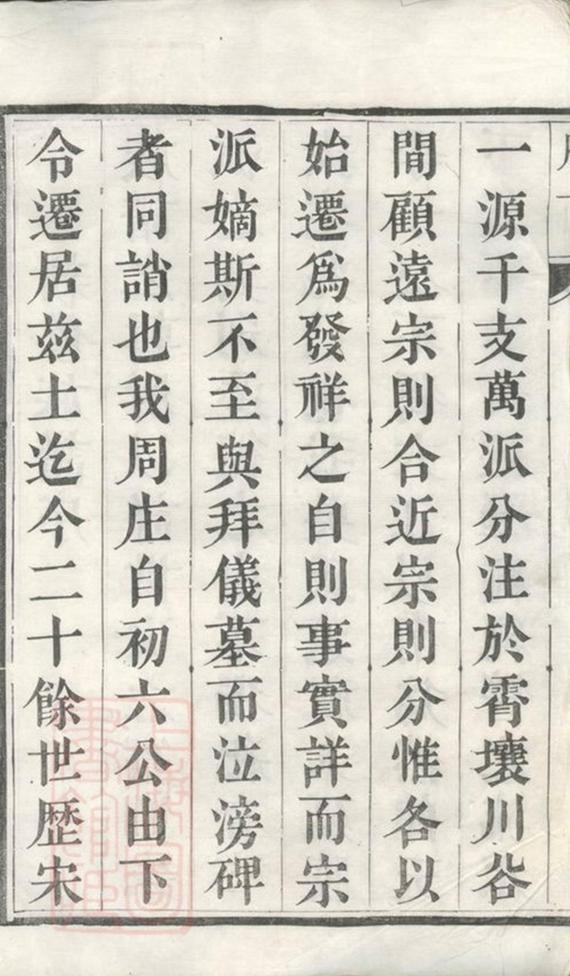 一源千支萬派分注於霄壤川谷
間顧遠宗則合近宗則分惟各以
始遷爲發祥之自則事實詳而宗
派嫡斯不至與拜儀墓而泣滂碑
者同誚也我周庄自初六公由下
令遷居茲土迄今二十餘世歷宋